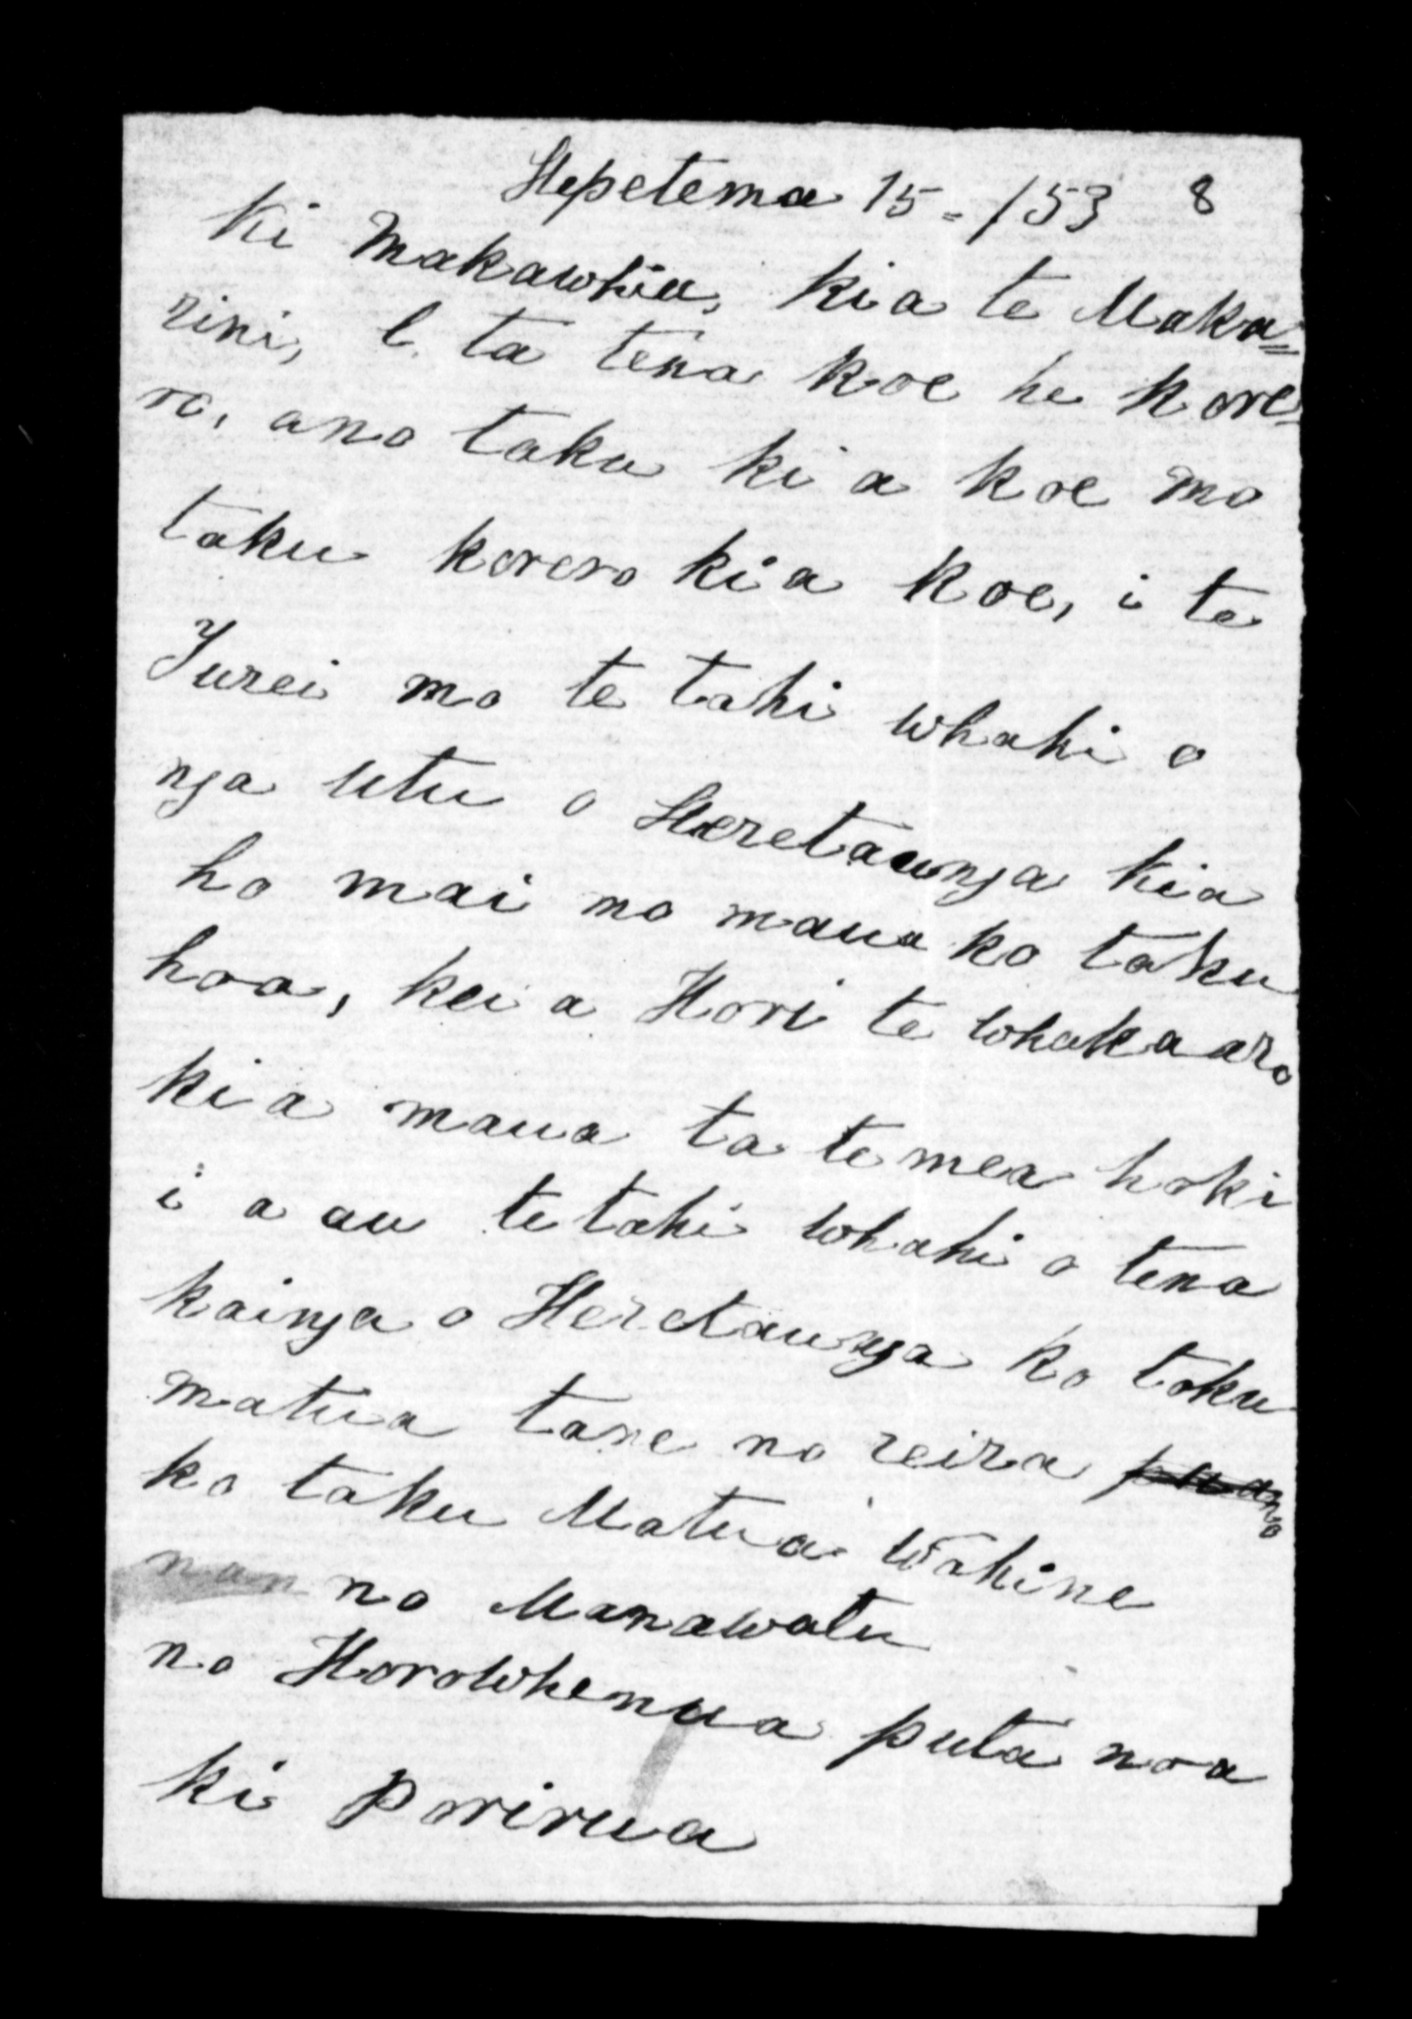 Hepetema 15 = / 53 8
Ki Makawhiu, kia te Maka=
rini, E. ta tena koe he kore=
ro, ano taku ki a koe mo
taku korero kia koe, i te
Turei mo te tahi whahi o
nga utu o Heretaunga kia
ho mai mo maua ko taku
hoa, kei a Hori te whakaaro
kia maua ta te mea hoki
i a au te tahi whahi o tena
kainga o Heretaunga ko toku
matua tane no reira
ko taku Matua wahine
no Manawatu
no Horowhenua puta noa
ki Porirua